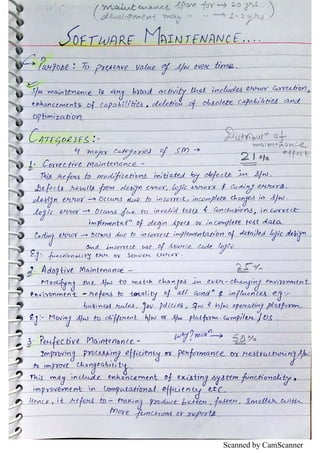 (maintenance span for → 20 yrs.
development may " " → 1-2 yrs)
SOFTWARE MAINTENANCE....
→ PURPOSE : To preserve value of s/w over time.
S/w maintenance is very broad activity that includes error correction,
enhancements of capabilities, deletion of obsolete capabilities and
optimization
CATEGORIES :-
Distributⁿ of
maintenance
effort
4 major categories of SM →
21%
1. Corrective Maintenance -
This refers to modifications initiated by defects in s/w.
Defects results from design error, logic errors & coding errors.
design error → Occurs due to incorrect incomplete changes in s/w
logic error → Occurs due to invalid tests & conclusions, incorrect
implementatⁿ of design specs or incomplete test data.
Coding error → Occurs due to incorrect implementation of detailed logic design
and incorrect use of source code logic
Eg:- functionality error or server error.
2. Adaptive Maintenance - 25%
Modifying the s/w to match changes in ever-changing environment.
Environment - refers to totality of all condⁿ & influences eg:-
business rules, gov. policies, h/w & s/w operating platform.
Eg:- Moving s/w to different h/w or s/w platform - compiler / OS.
(why? max^m) → 50%
3. Perfective Maintenance -
Improving processing efficiency or performance or restructuring s/w
to improve changeability.
This may include enhancement of existing system functionality,
improvement in computational efficiency etc.
Hence, it refers to - making product better, faster, smaller with
more functions or reports.
Scanned by CamScanner